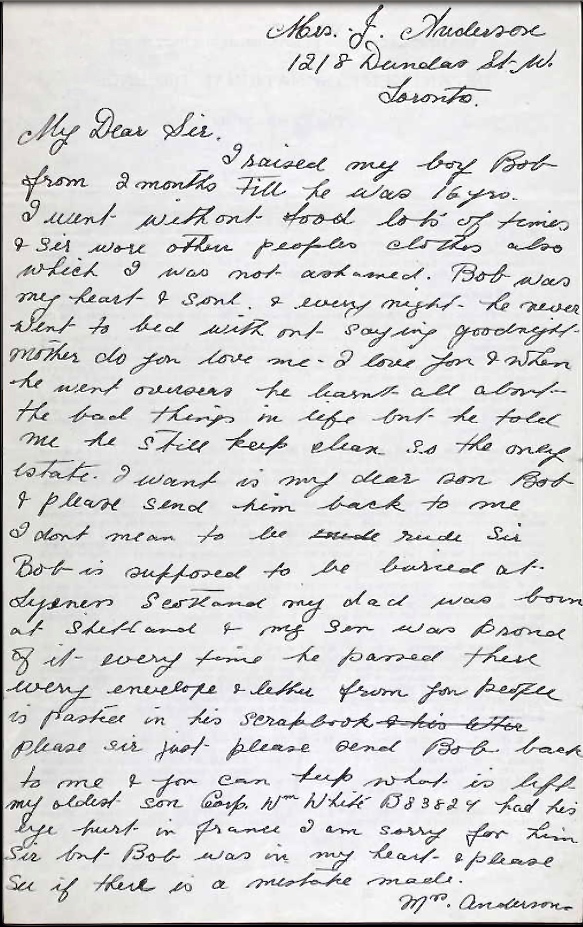 Mrs. J. Anderson
1218 Dundas St. W.
Toronto.
My Dear Sir.
I raised my boy Bob
from 2 months Till he was 16 yrs.
I went without food lots of times
& Sir wore other peoples clothes also
which I was not ashamed. Bob was
my heart & soul. & every night he never
went to bed with out saying goodnight
mother do you love me - I love you & when
he went overseas he learnt all about
the bad things in life but he told
me he still keep clean so the only
estate. I want is my dear son Bob
& please send him back to me
I dont mean to be rude rude Sir
Bob is supposed to be buried at
Lyness Scotland my dad was born
at Shetland & my son was proud
of it every time he passed there
every envelope & letter from you people
is pasted in his scrapbook & his letter
please sir just please send Bob back
to me & you can keep what is left
my oldest son Corp. Wm White B83824 had his
eye hurt in france I am sorry for him
Sir but Bob was in my heart & please
See if there is a mistake made.
Mrs. Anderson